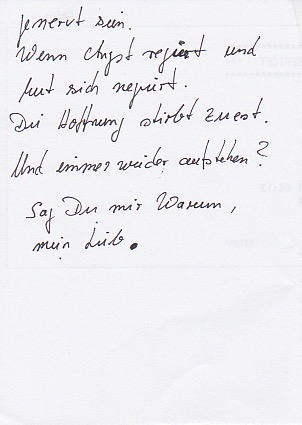 genervt sein.
Wenn Angst regiert und
Mut sich negiert.
Die Hoffnung stirbt zuerst.
Und immer wieder aufstehen?
Sag Du mir Warum,
mein Lieb.